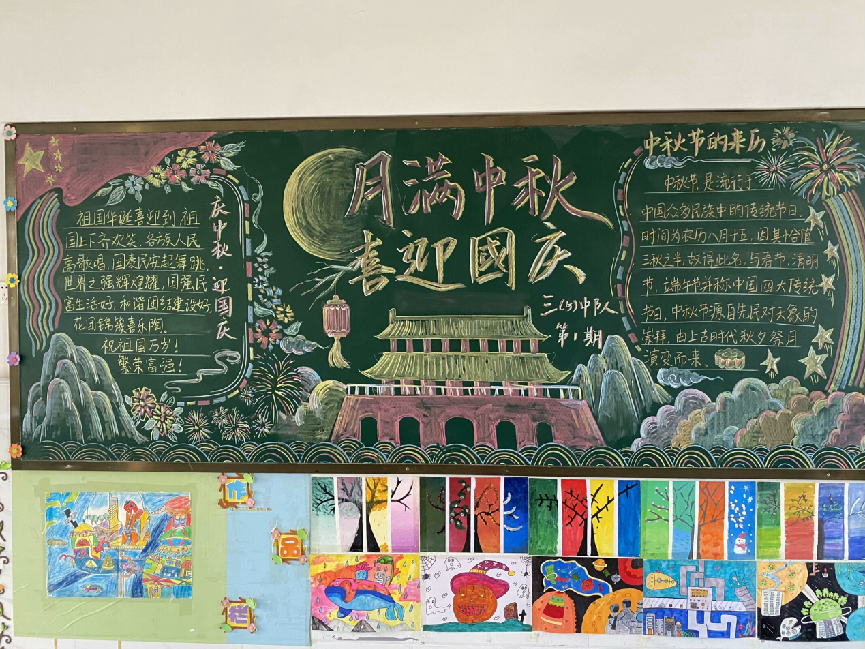 庆中秋·迎国庆
祖国华诞喜迎到,祖
国上下齐欢笑,各族人民
高歌唱,国泰民安起舞跳,
世界之强辉煌耀,国强民
富生活好,和谐团结建设好
花团锦簇喜乐陶,
祝祖国万岁!
繁荣富强!
月满中秋
喜迎國庆
三(5)中队
第1期
中秋节的来历
中秋节,是流行于
中国众多民族中的传统节日,
时间为农历八月十五,因其恰值
三秋之半,故得此名,与春节、清明
节、端午节并称中国四大传统
节日,中秋节源自先民对天象的
崇拜,由上古时代秋夕祭月
演变而来。